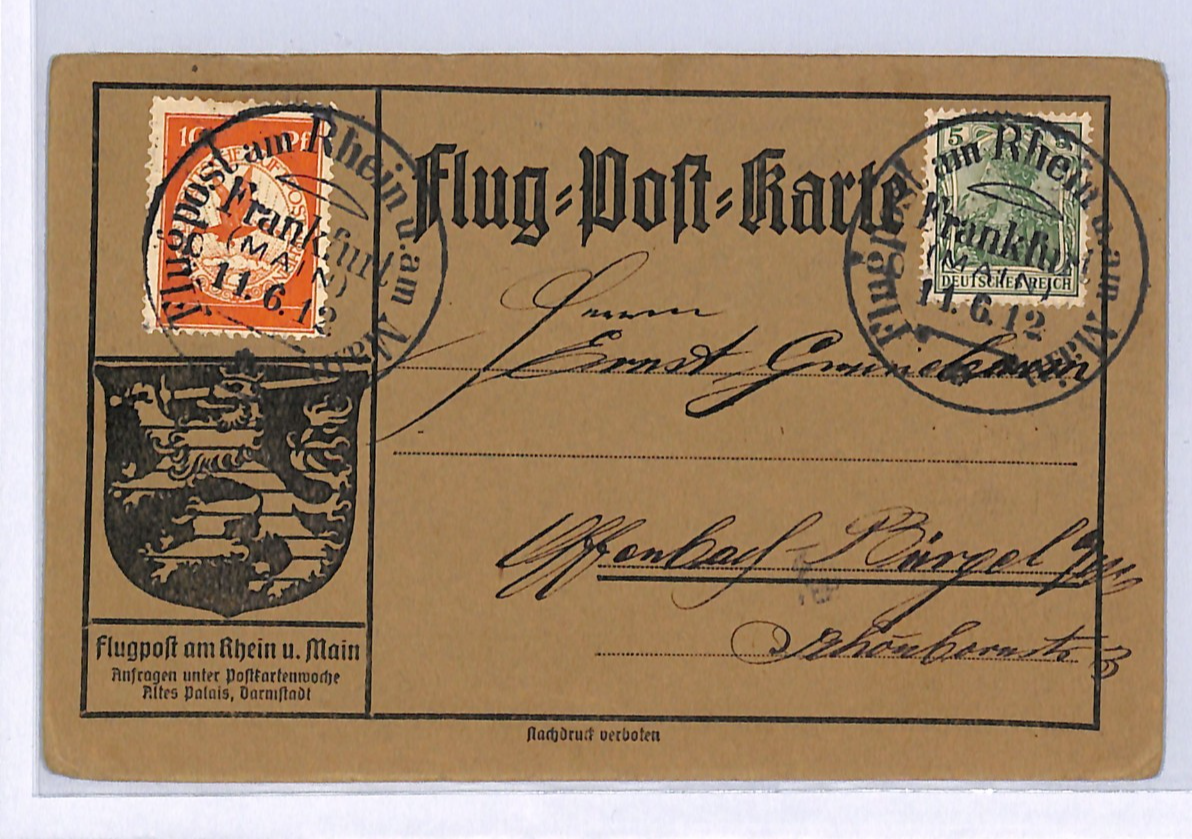 10 Pf
Flugpost am Rhein u. am Main
Frankfurt
(MAIN)
11.6.12
Flug=Post=Karte
5 5
DEUTSCHES REICH
Flugpost am Rhein u. am Main
Frankfurt
(MAIN)
11.6.12
Herrn
Ernst
Offenbach - Bürgel a/M
Schönbornstr.
Flugpost am Rhein u. Main
Anfragen unter Postkartenwoche
Altes Palais, Darmstadt
Nachdruck verboten